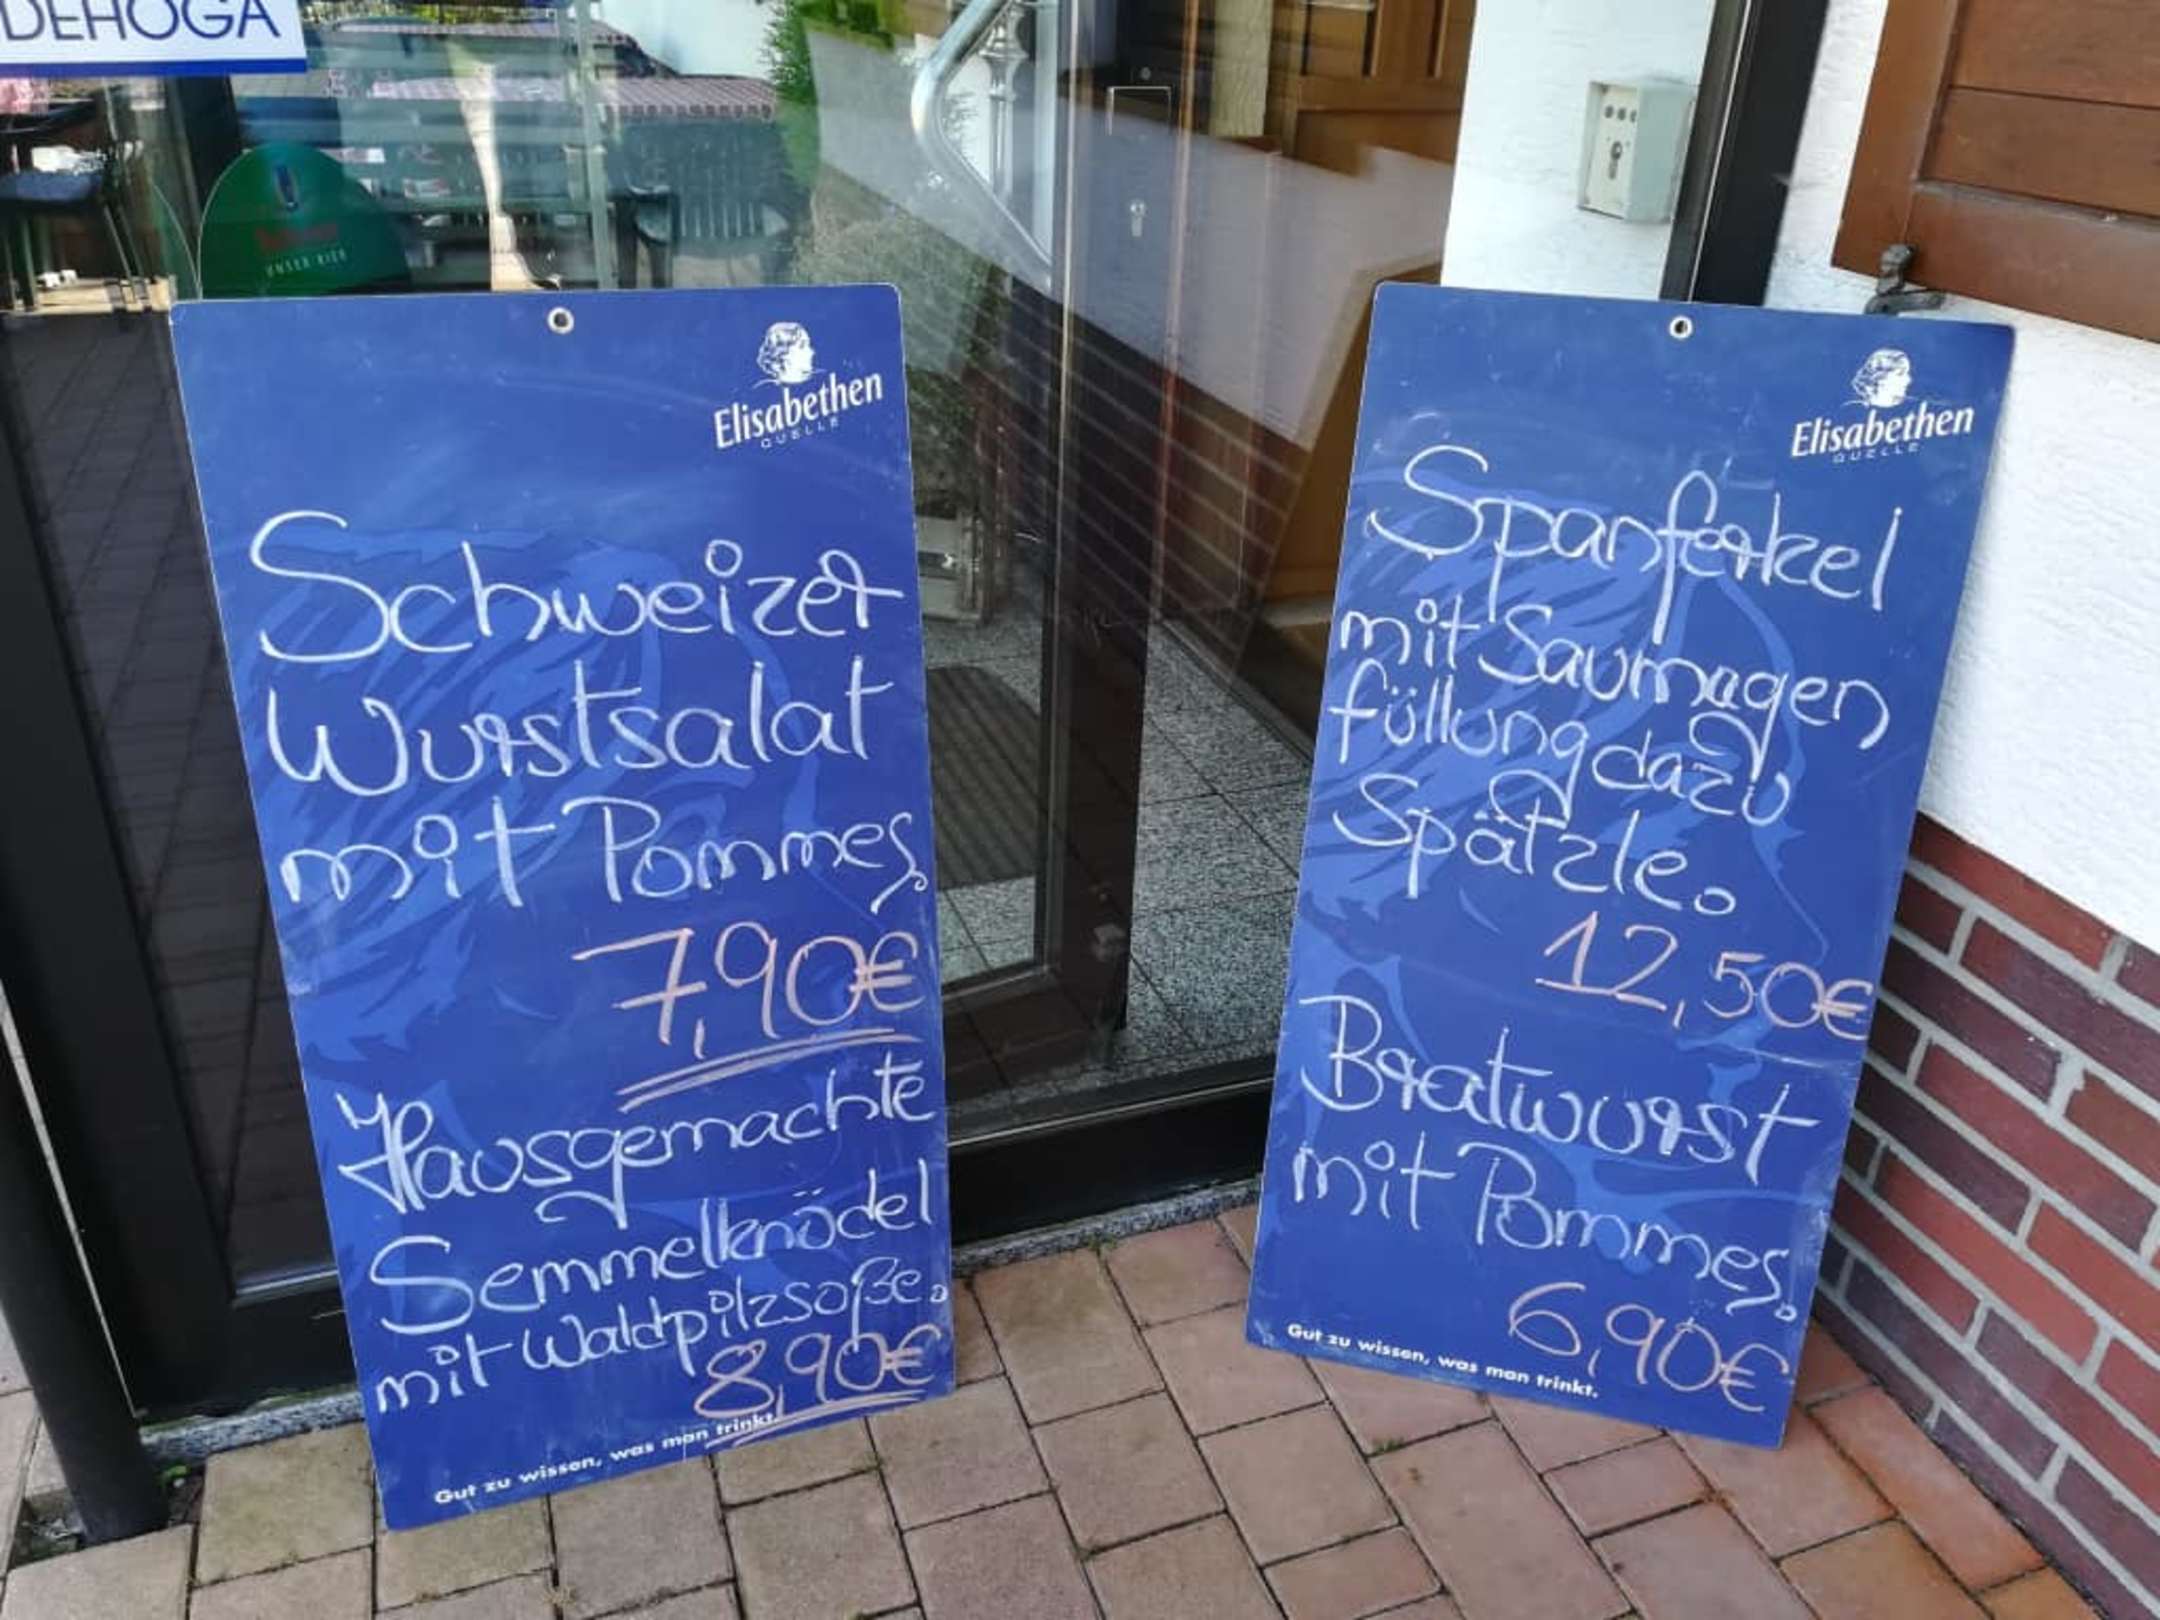 DEHOGA
UNSER BIER
Elisabethen
QUELLE
Schweizer
Wurstsalat
mit Pommes.
7,90€
Hausgemachte
Semmelknödel
mit Waldpilzsoße.
8,90€
Gut zu wissen, was man trinkt.
Elisabethen
QUELLE
Spanferkel
mit Saumagen
füllung dazu
Spätzle.
12,50€
Bratwurst
mit Pommes.
6,90€
Gut zu wissen, was man trinkt.